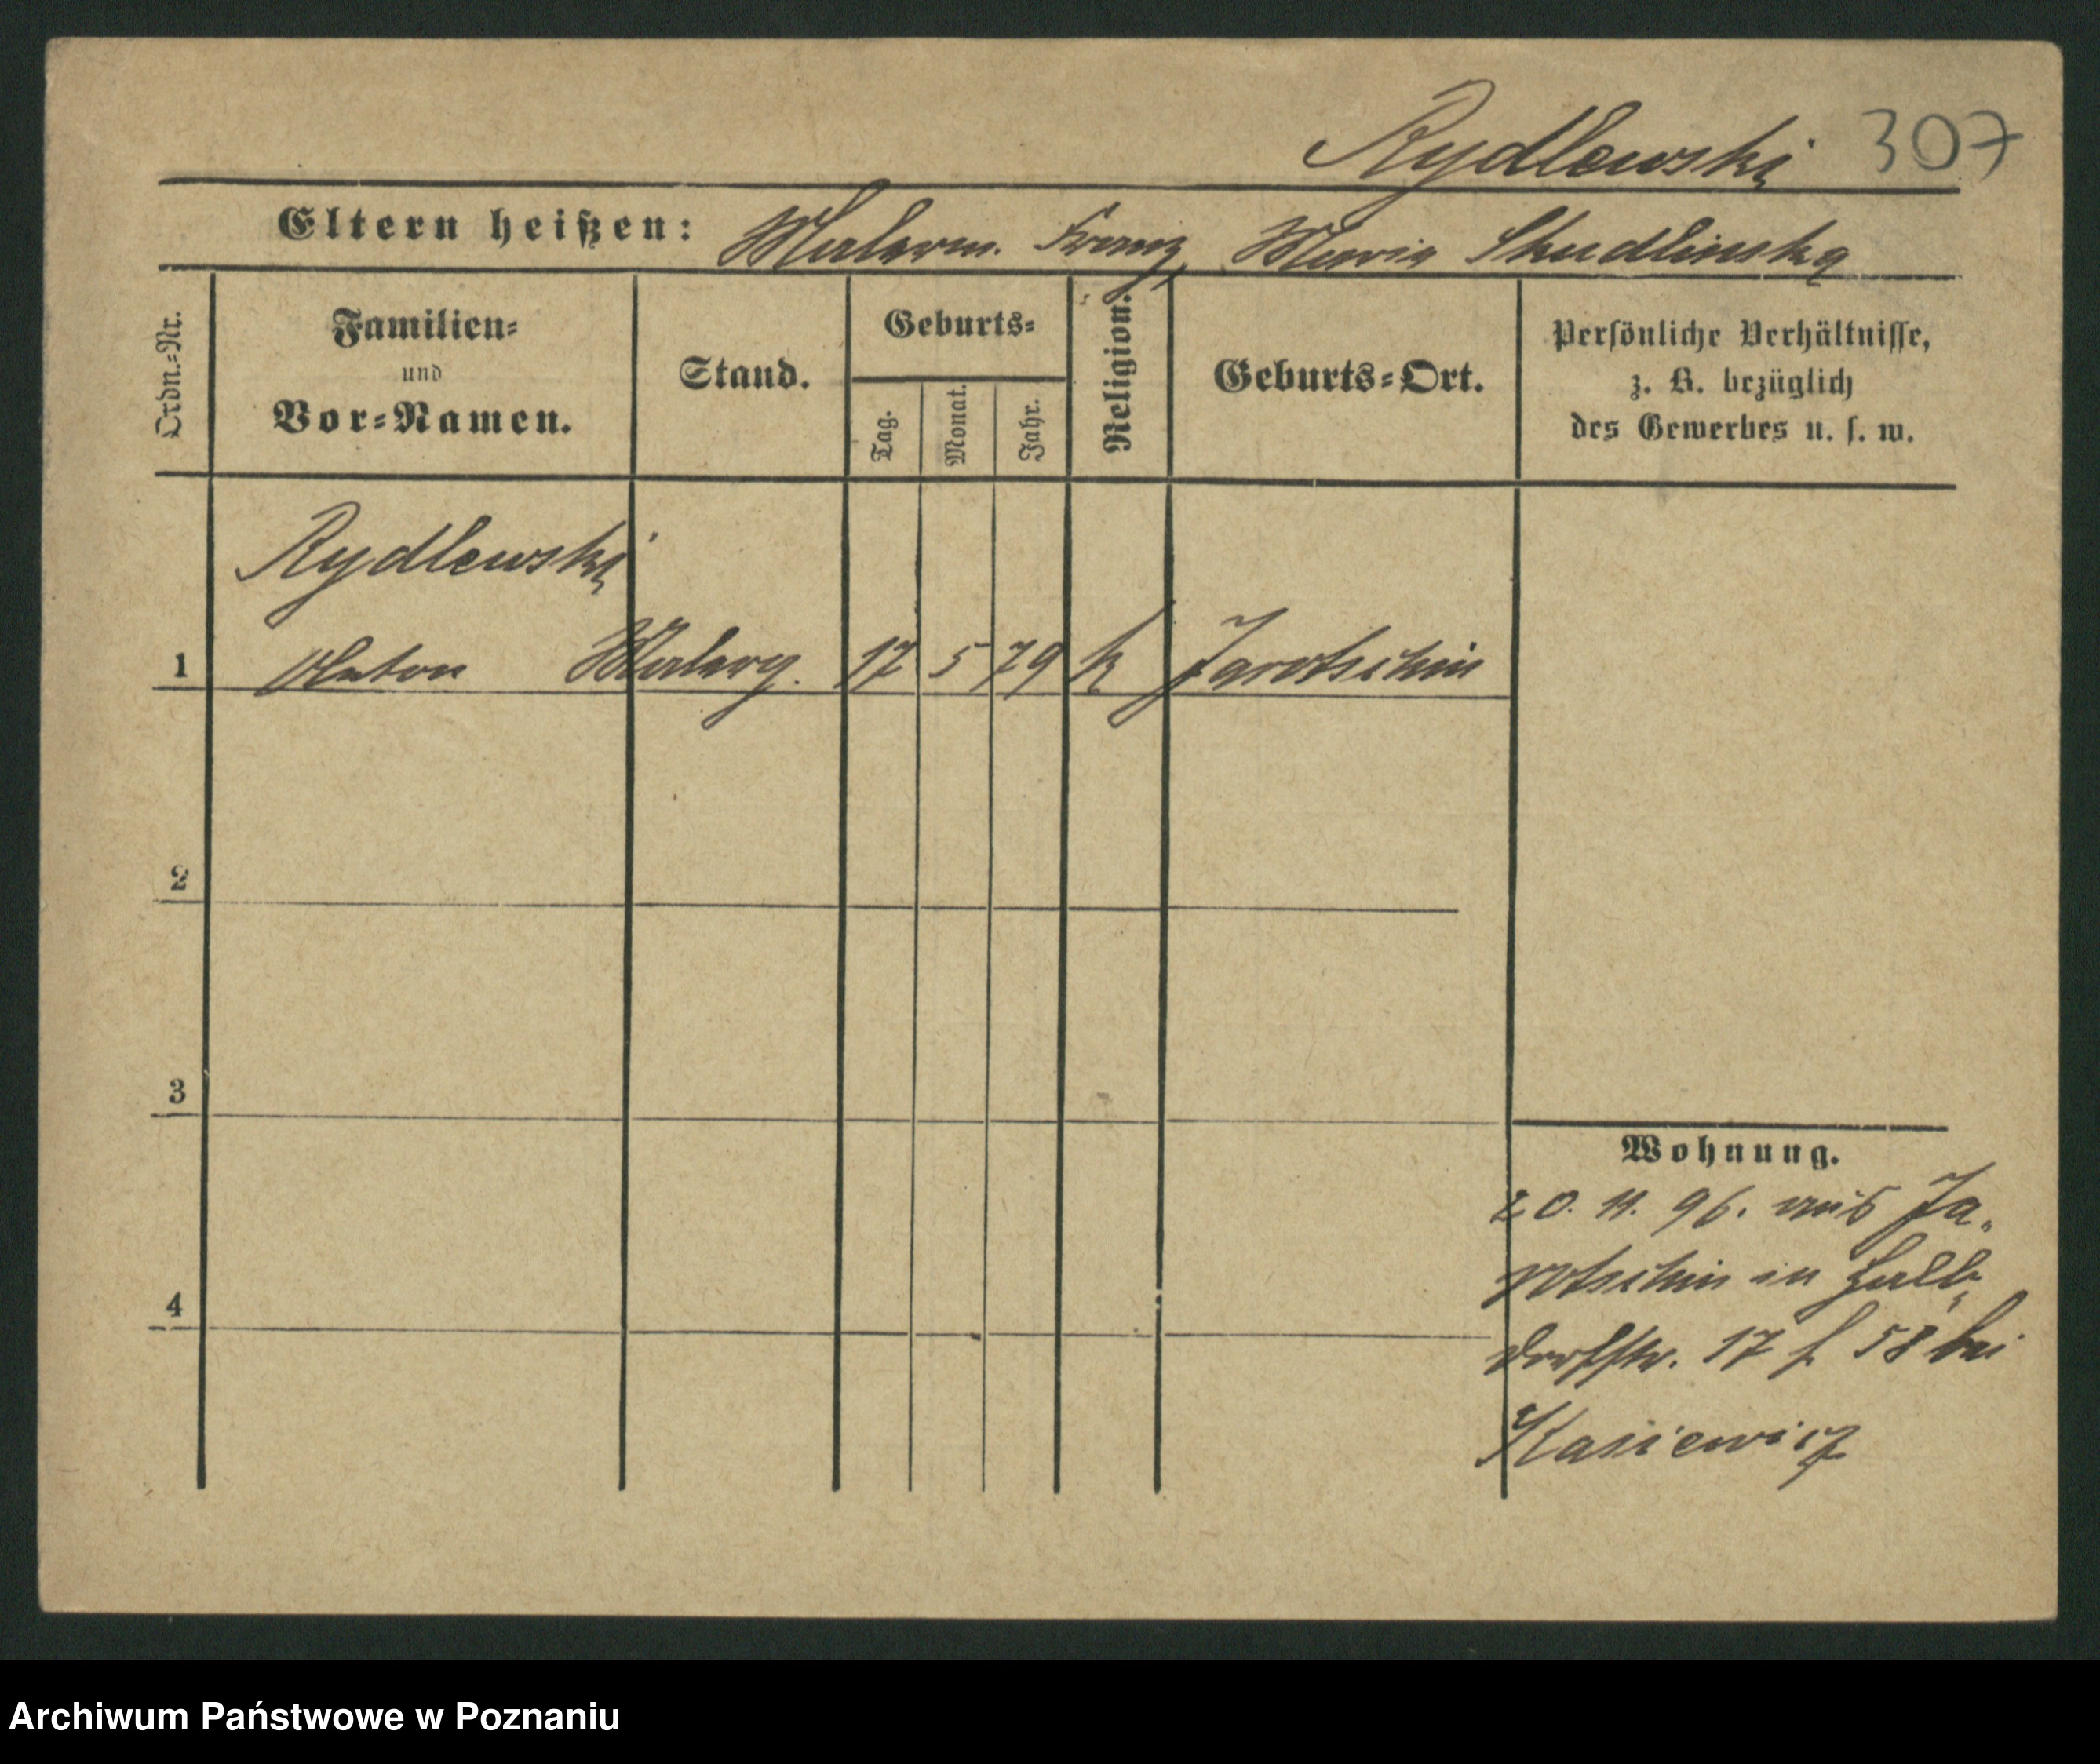 Rydlewski 307
Eltern heißen: Malerm. Franz, Maria Skudlinska
Ordn.=Nr.
Familien=
und
Vor=Namen.
Stand.
Geburts=
Tag.
Monat.
Jahr.
Religion.
Geburts=Ort.
Persönliche Verhältnisse,
z. B. bezüglich
des Gewerbes u. s. w.
Rydlewski
1 Anton Malerg. 17 5 79 k Jarotschin
2
3
4
Wohnung.
20. 11. 96. aus Ja-
rotschin in Halb-
dorfstr. 17 f 58 bei
Kasiewicz
Archiwum Państwowe w Poznaniu